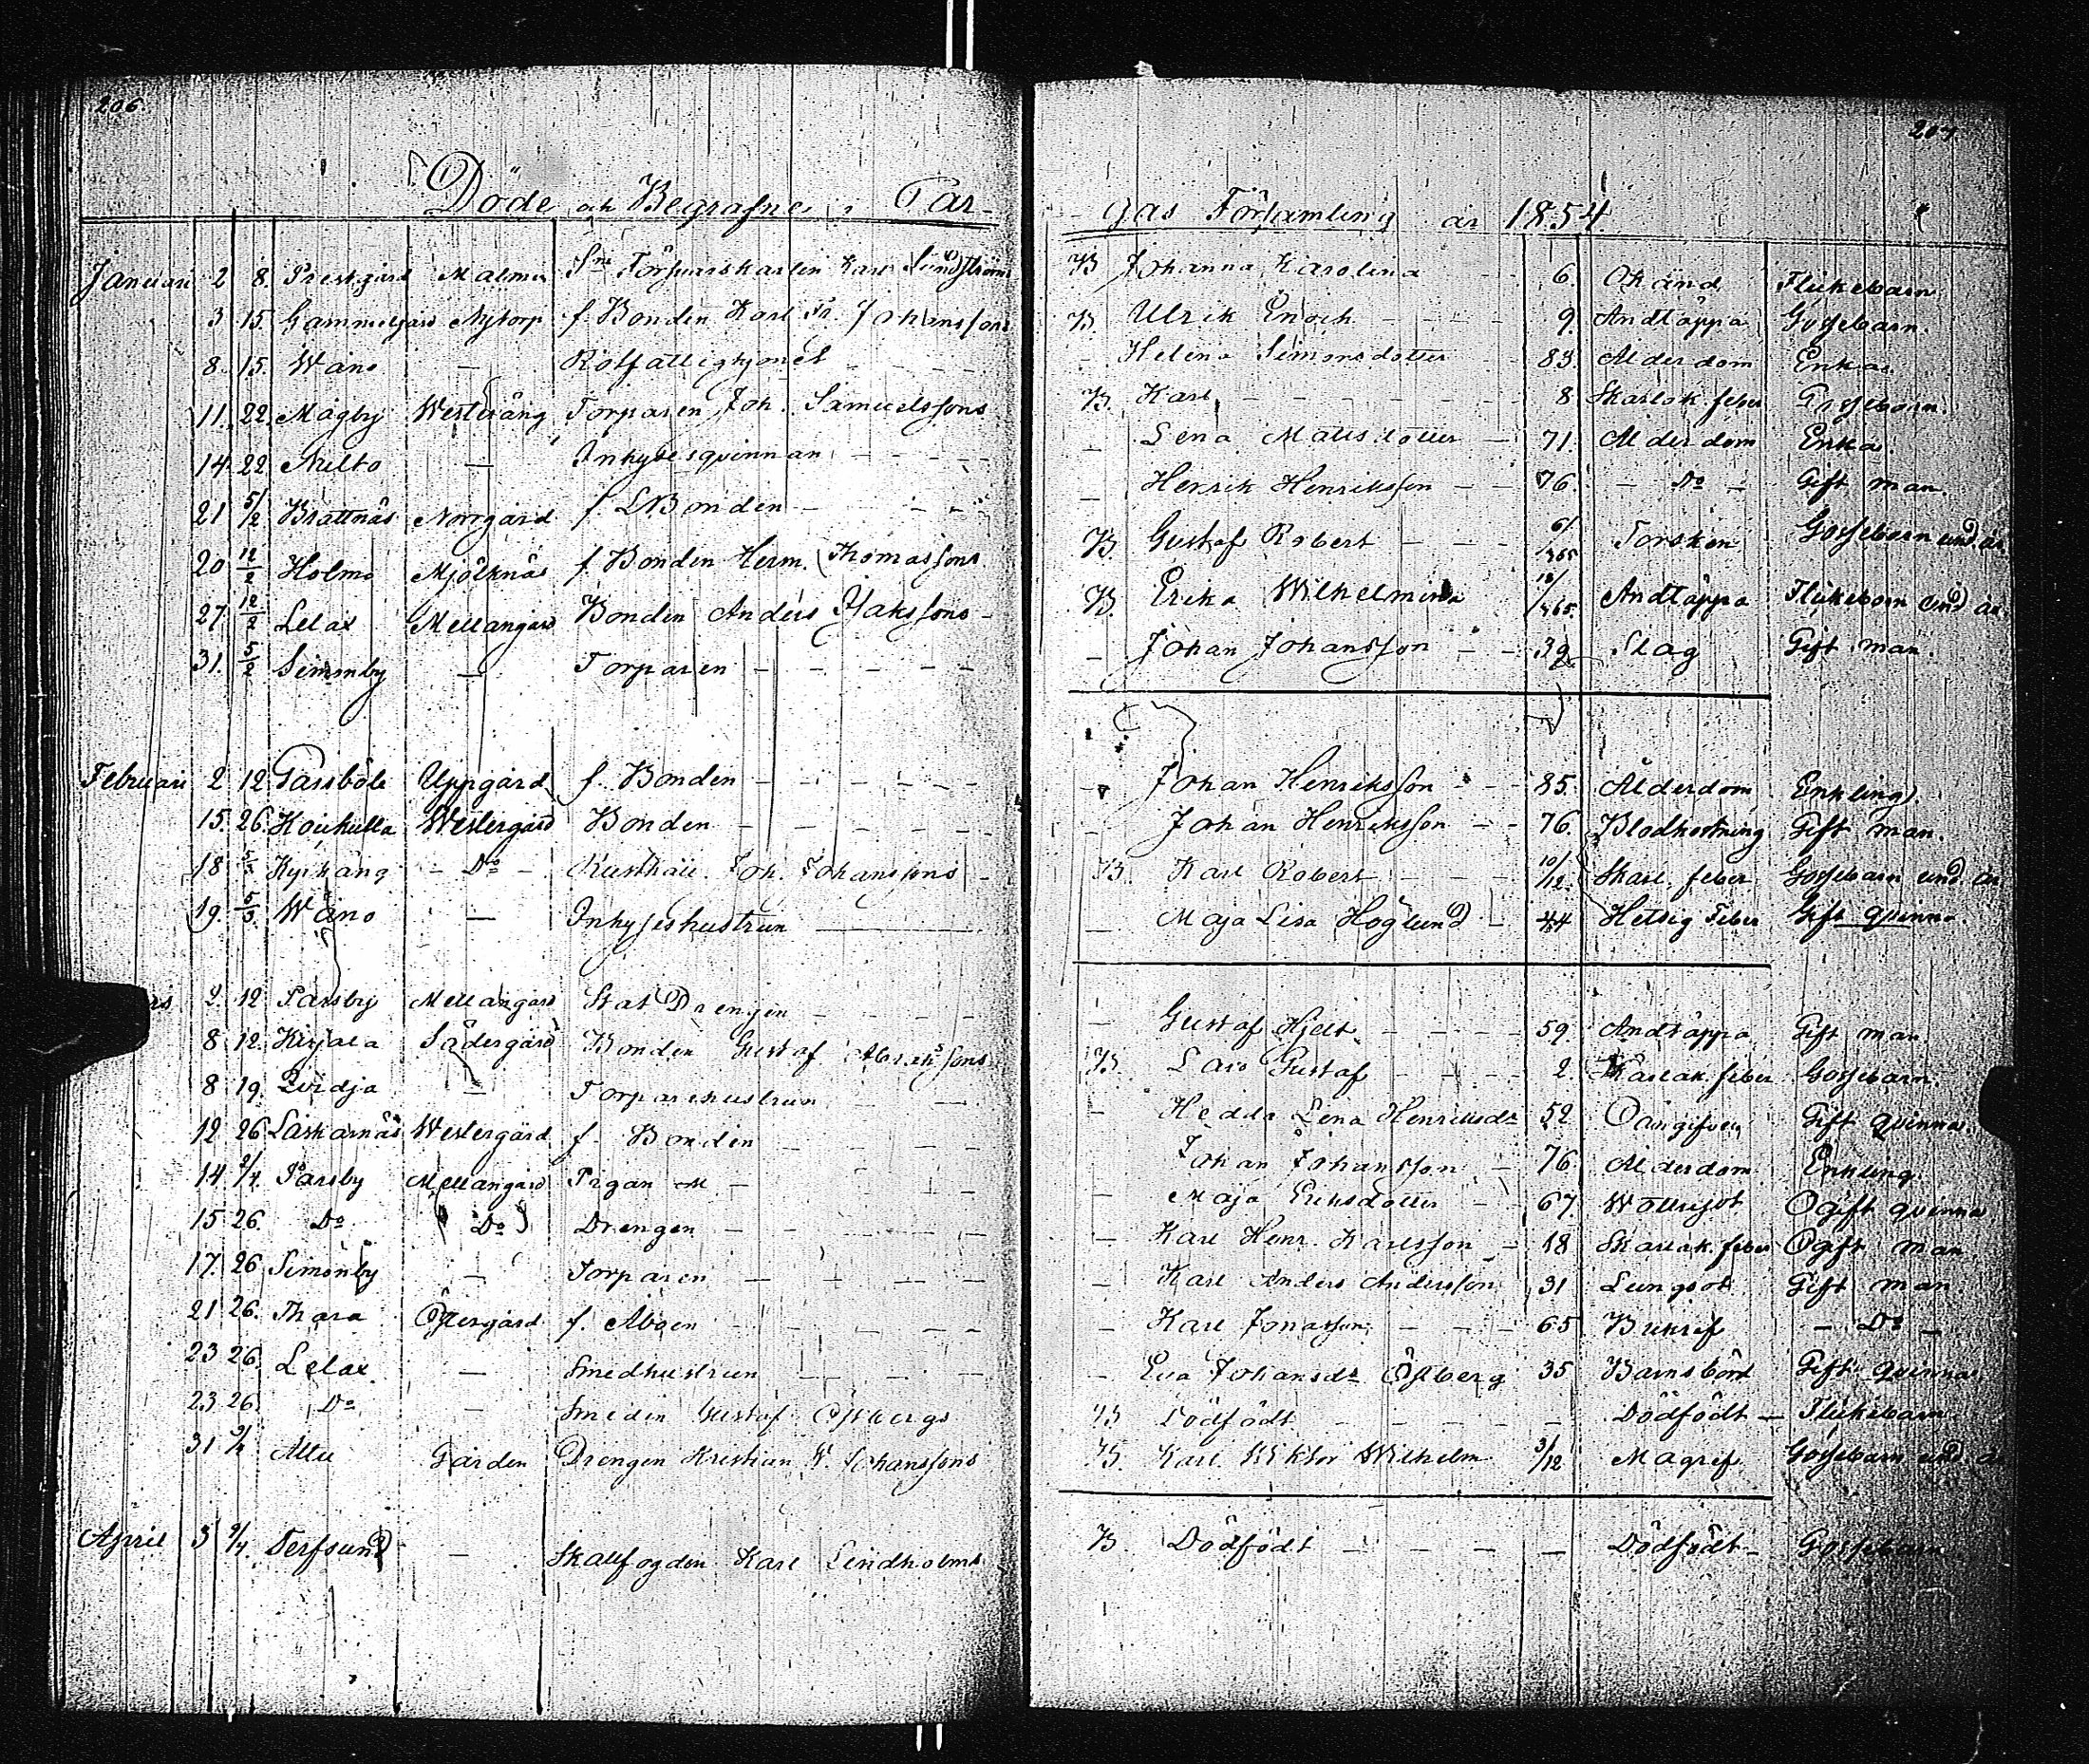 206
207
Döde och Begrafne i Par-
gas Församling år 1854.
Januari 2 8. Prestgård Malmen Förswarskarlen Karl Lindströms B Johanna Karolina - - 6. Okänd Flickebarn
3 15. Gammelgård Nytorp f. Bonden Karl Fr. Johanssons B. Ulrik Enoch - - - 9. Andtäppa Gossebarn.
8. 15. Wåno — Rotfattighjonet - - - Helena Simonsdotter 83. Ålderdom Enka.
11. 22. Mågby Westeräng Torparen Joh. Samuelssons B. Karl - - - - 8 Skarlak. feber Gossebarn.
14 22 — Inhysesqvinnan - - - - Lena Matts dotter - 71. Ålderdom Enka.
21 5/2 Brattnäs Norrgård f. Bonden - - - - Henrik Henriksson - - 76. - Do - Gift man.
20 12/2 Holmo Mjölknäs f. Bonden Herm. Thomassons B. Gustaf Robert - - - 6/365 Torsken Gossebarn und. år
27. 12/2 Lelax Mellangård Bonden Anders Isakssons - B. Erika Wilhelmina 18/365. Andtäppa Flickebarn und. år.
31. 5/2 Simonby — Torparen - - - - - Johan Johansson - - 39 Slag Gift man.
Februari 2 12 Parsböle Uppgård f. Bonden - - - - Johan Henriksson - - 85. Ålderdom Enkling.
15. 26. Koukulla Westergård Bonden - - - - - Johan Henriksson - - 76. Blodhostning Gift man.
18 5/3 Kyrkäng - Do - Rusthåll. Joh. Johanssons - B. Karl Robert - - - 10/12. Skarl. feber Gossebarn und. år
19. 5/3 Wåno — Inhyseshustrun — Maja Lisa Höglund - 44 Hetsig Feber Gift qvinna.
2. 12 Parsby Mellangård Stat Drengen - - - - Gustaf Hjelt - - - 59. Andtäppa Gift man
8 12. Kirjala Södergård Bonden Gustaf Abr: sons B. Lars Gustaf - - - 2. Skarlak. feber Gossebarn.
8 19. Qvidja — Torparehustrun - - - Hedda Lena Henriksdr 52 Oangifven Gift qvinna.
12 26 Laskarnäs Westergård f. Bonden - - - Johan Johansson - 76 Ålderdom Enkling.
14 2/4. Parsby Mellangård Pigan - - - Maja Eriksdotter - 67. Wattusot Ogift qvinna
15 26. Do (Do) Drengen - - - - Karl Henr. Karlsson - 18 Skarlak. feber Ogift man
17. 26 Simonby — Torparen - - - - Karl Anders Andersson 31 Lungsot Gift man
21 26. Thara Östergård f. Åboen - - - - Karl Jonasson - - - 65 Bukref - Do -
23 26. Lelax. — Smedhustrun - - - Eva Johansdr Östberg 35 Barnsbörd Gift qvinna
23 26. Do - Smeden Gustaf Östbergs B Dödfödt - - - - Dödfödt - Flickebarn
31 9/4 Attu Gården Drengen Kristian W. Johanssons B. Karl Wiktor Wilhelm 3/12 Magref Gossebarn und. år
April 3 9/4. Terfsund - Skallfogden Karl Lindholms B. Dödfödt - - - - - Dödfödt - Gossebarn